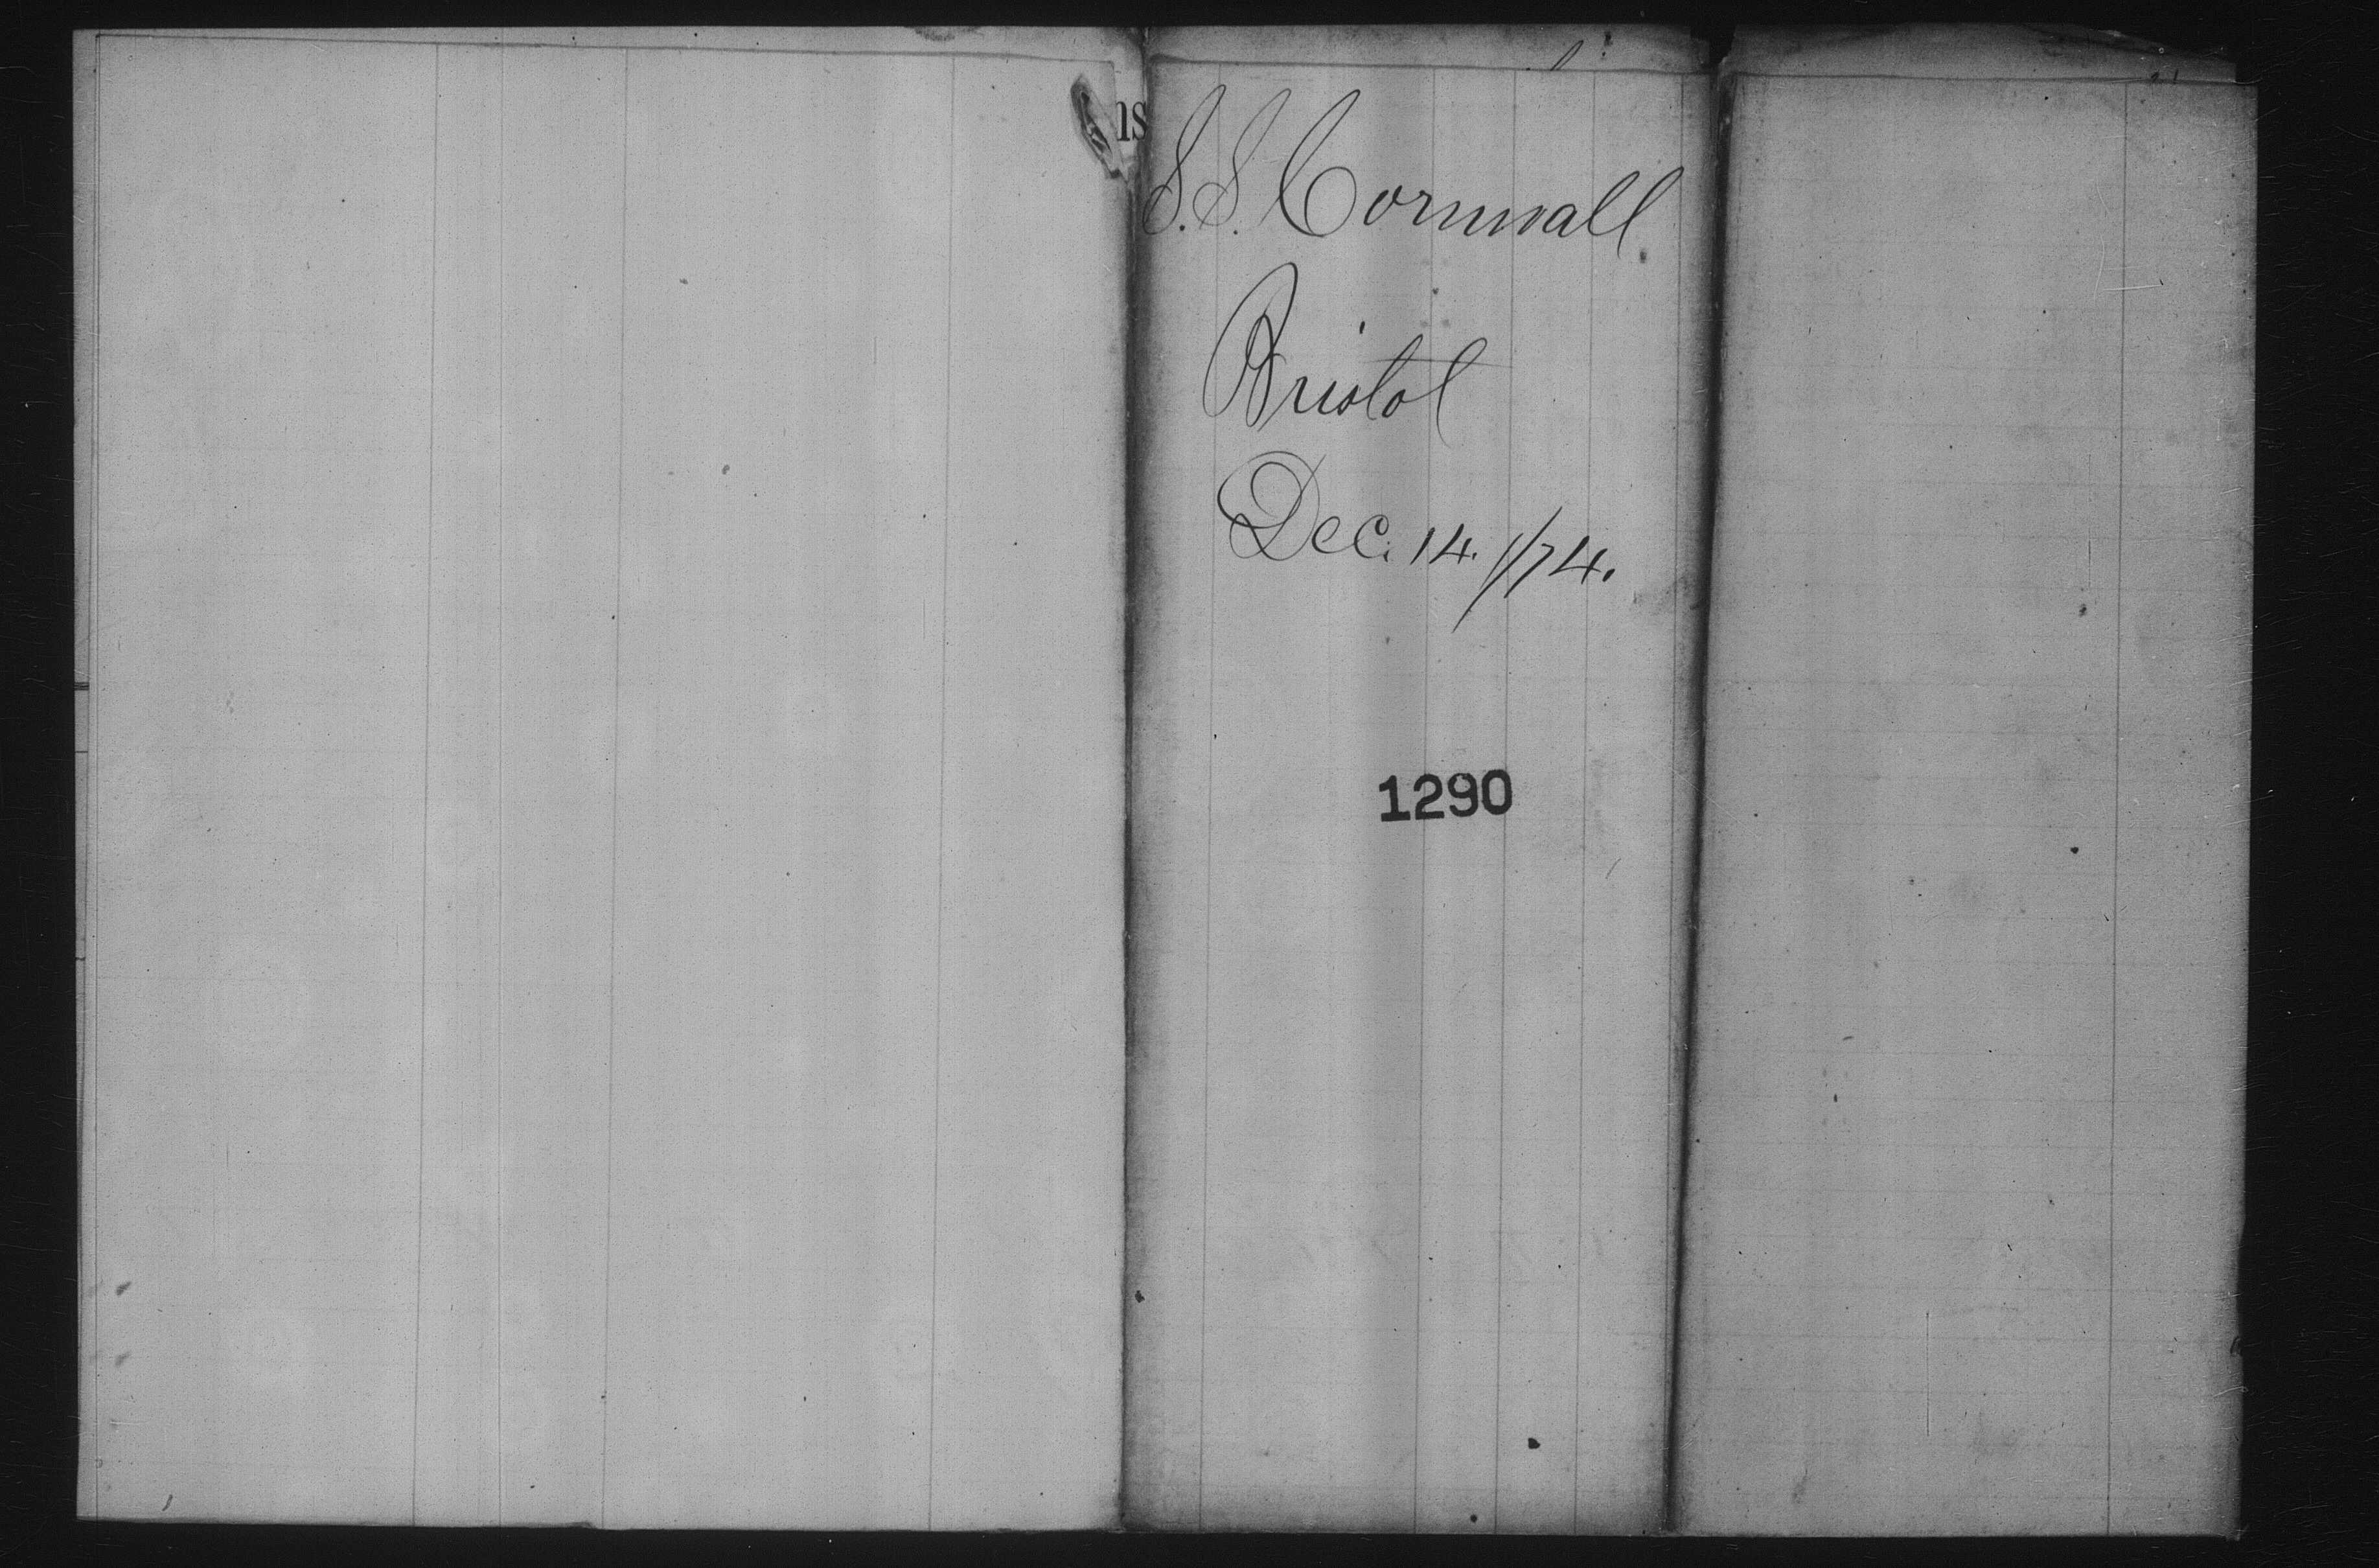 ns
S.S. Cornwall.
Bristol
Dec. 14. /74.
1290